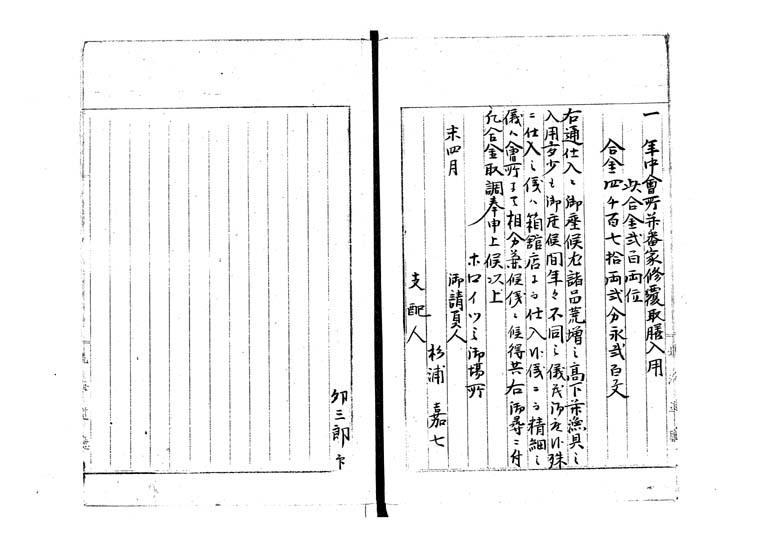 一 年中會所并番家修覆取膳入用
〆合金弐百両位
合金四千百七拾両弐分永弐百文
右通仕入ニ御座候尤諸品荒増之高下并漁具之
入用多少も御座候間年々不同之儀茂御座候殊
ニ仕入之儀ハ箱館店ニ而仕入候儀ニ而精細之
儀ハ會所ニ而相分兼候儀ニ候得共右御尋ニ付
凡合金取調奉申上候以上
ホロイツミ御場所
未四月 御請負人
杉浦嘉七
支配人
卯三郎